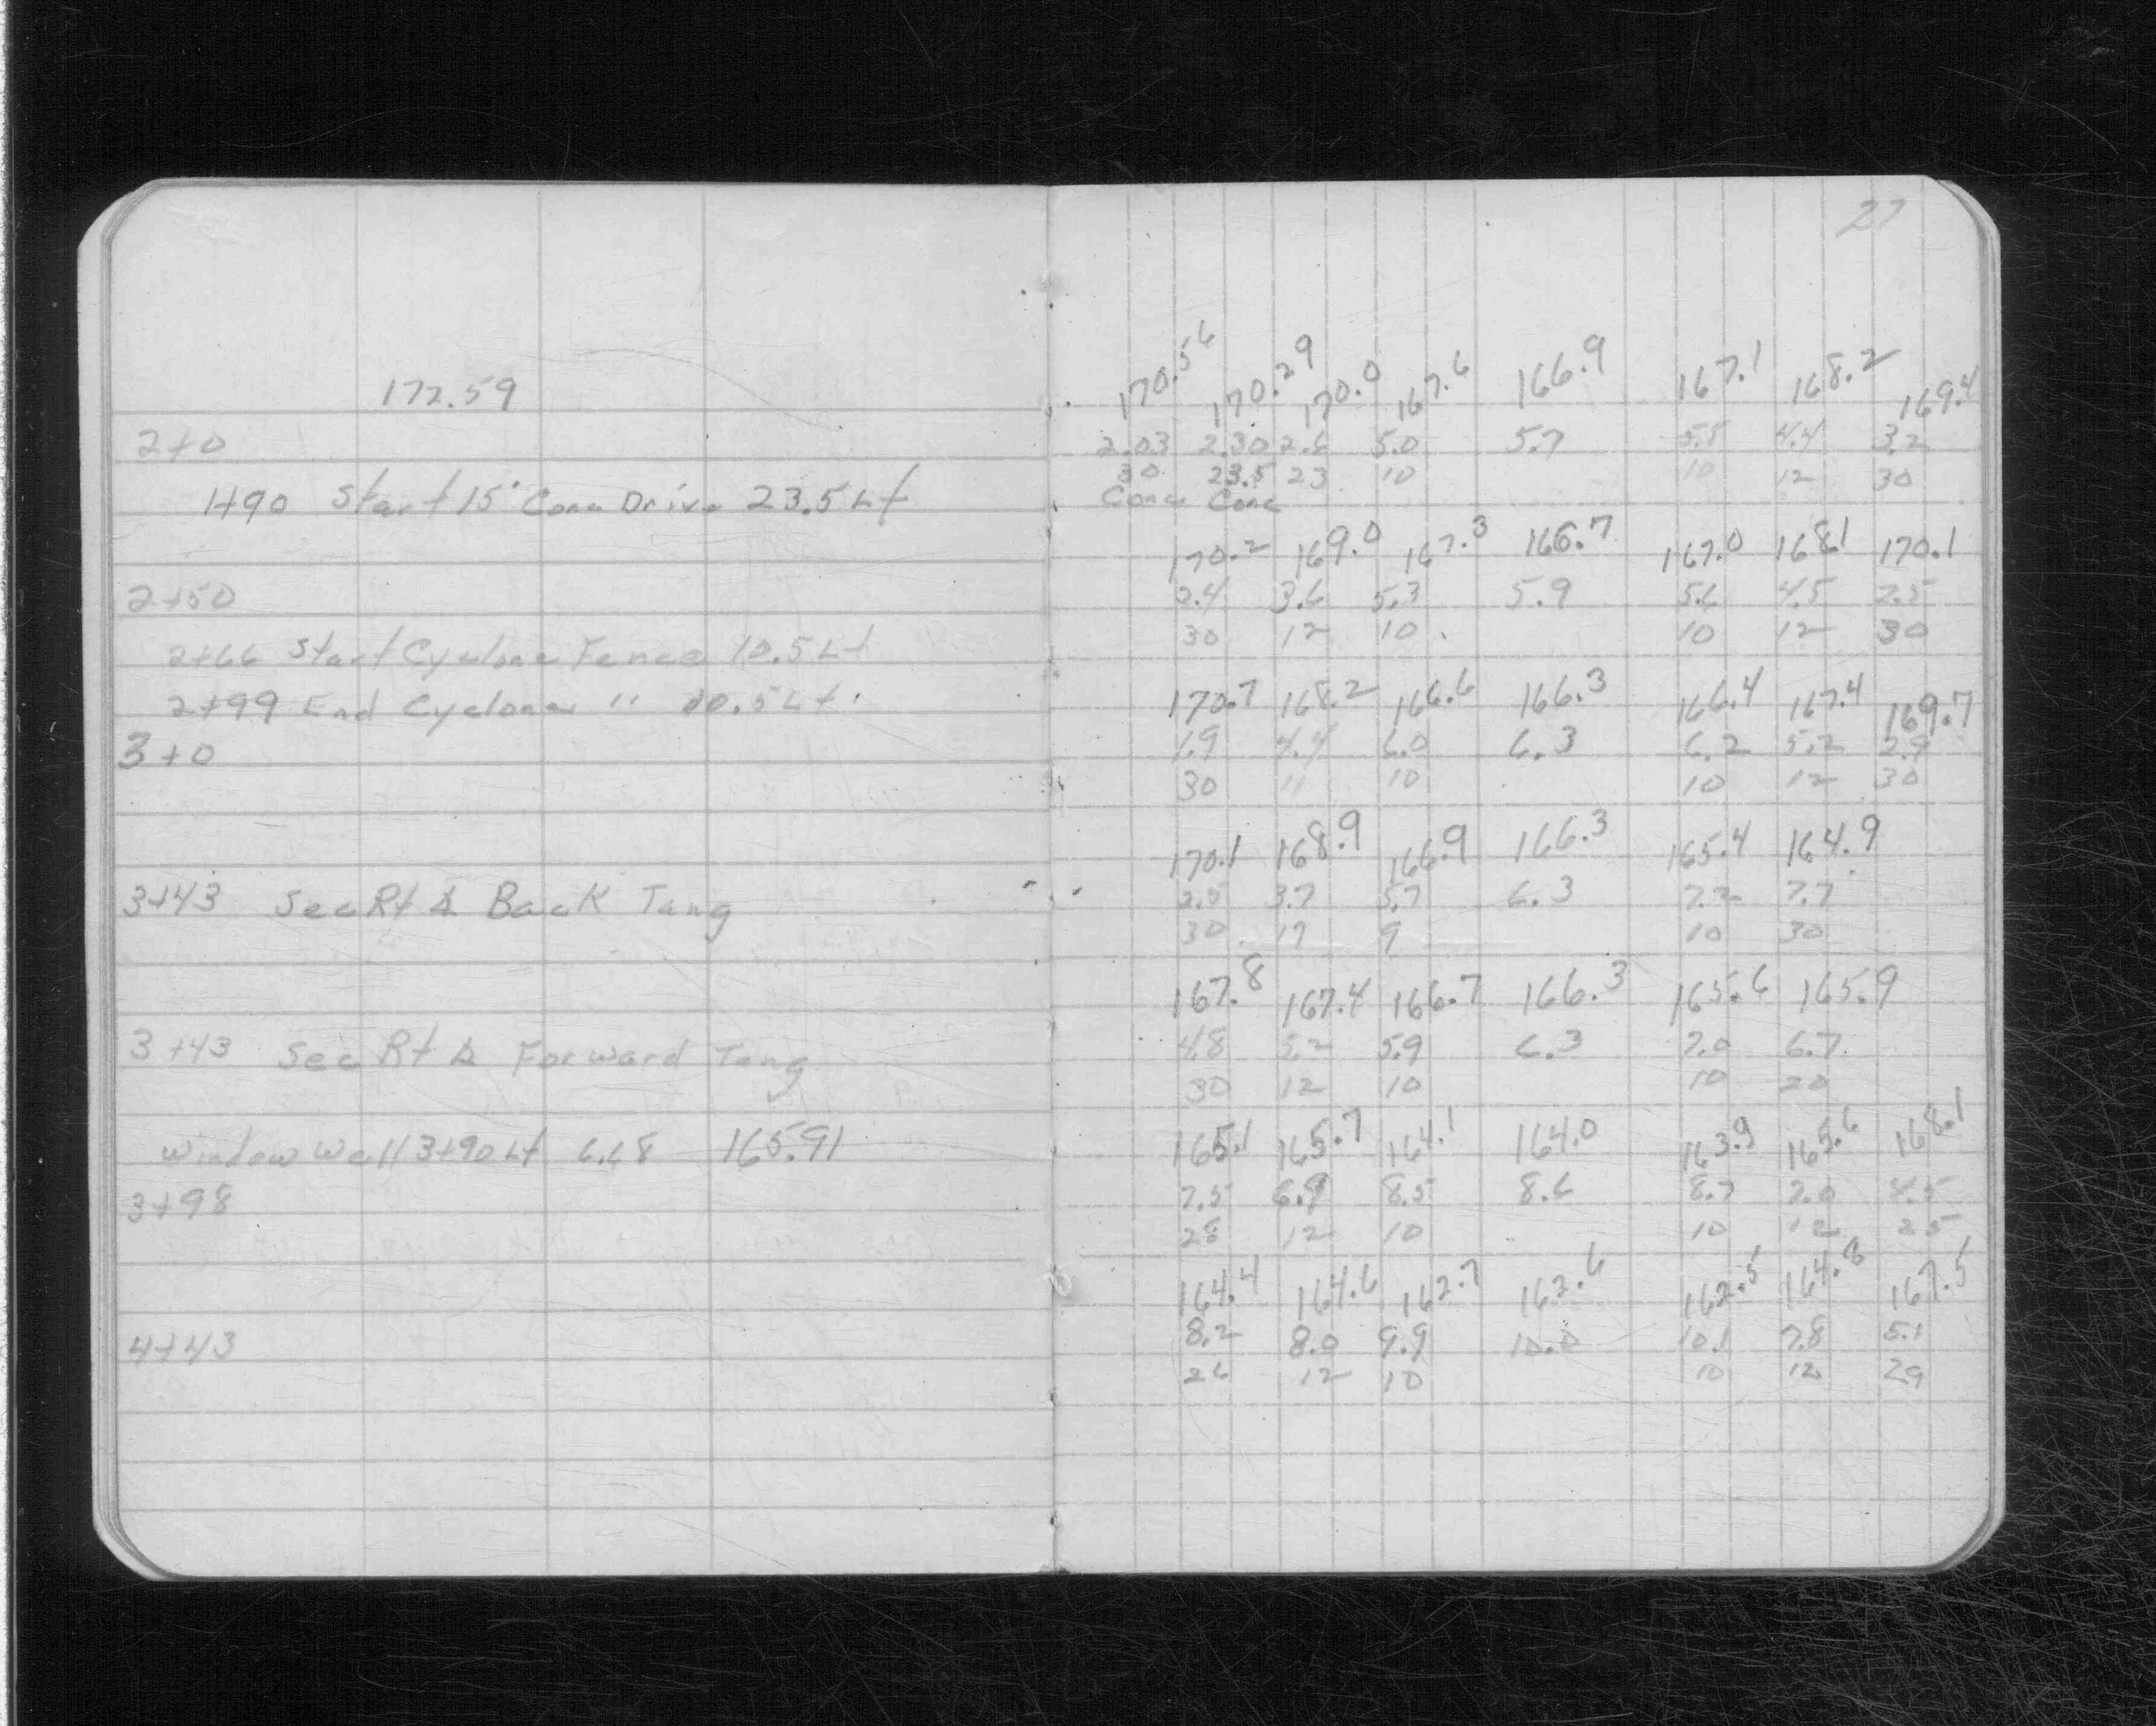 27
172.59
170.56 170.29 170.0 167.6 166.9 167.1 168.2 169.4
2+0
2.03 2.30 2.6 5.0 5.7 5.5 4.4 3.2
30 23.5 23 10 10 12 30
1+90 Start 15' Conc Drive 23.5 Lt
Conc Conc
170.2 169.0 167.3 166.7 167.0 168.1 170.1
2+50
2.4 3.6 5.3 5.9 5.6 4.5 2.5
30 12 10 10 12 30
2+66 Start Cyclone Fence 10.5 Lt
2+99 End Cyclone " 10.5 Lt.
170.7 168.2 166.6 166.3 166.4 167.4 169.7
3+0
1.9 4.4 6.0 6.3 6.2 5.2 2.9
30 11 10 10 12 30
170.1 168.9 166.9 166.3 165.4 164.9
3+43 Sec Rt ∆ Back Tang
2.5 3.7 5.7 6.3 7.2 7.7
30 17 9 10 30
167.8 167.4 166.7 166.3 165.6 165.9
3+43 Sec Rt ∆ Forward Tang
4.8 5.2 5.9 6.3 7.0 6.7
30 12 10 10 20
Window Well 3+90 Lt 6.68 165.91
165.1 165.7 164.1 164.0 163.9 165.6 168.1
3+98
7.5 6.9 8.5 8.6 8.7 7.0 4.5
28 12 10 10 12 25
164.4 164.6 162.7 162.6 162.5 164.8 167.5
4+43
8.2 8.0 9.9 10.0 10.1 7.8 5.1
26 12 10 10 12 29